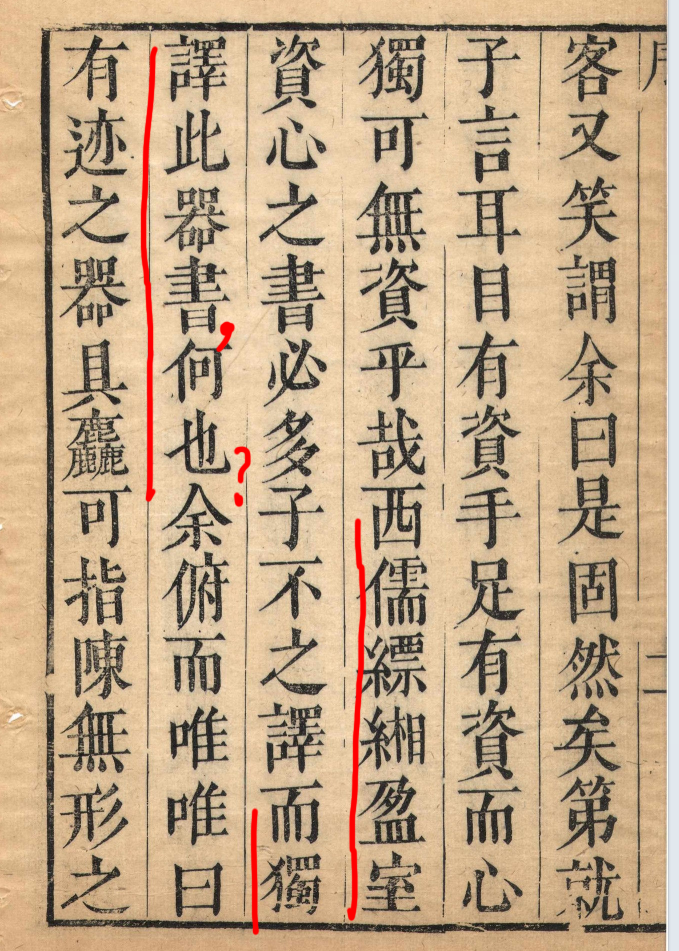 客又笑謂余曰是固然矣第就
子言耳目有資手足有資而心
獨可無資乎哉西儒縹緗盈室
資心之書必多子不之譯而獨
譯此器書,何也?余俯而唯唯曰
有迹之器具麤可指陳無形之